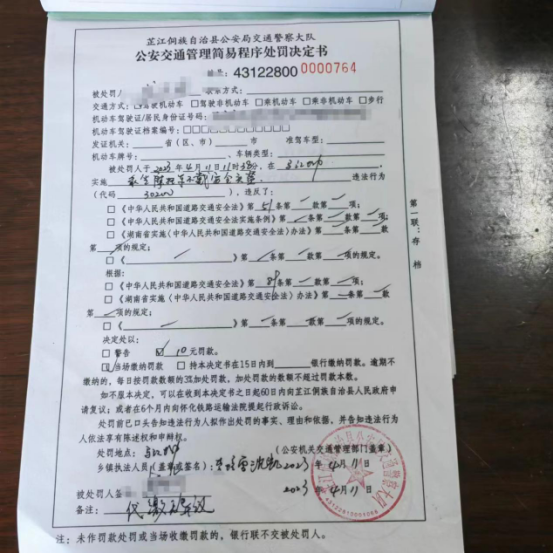 芷江侗族自治县公安局交通警察大队
公安交通管理简易程序处罚决定书
编号：43122800 0000764
被处罚人 联系方式：
交通方式：□驾驶机动车 □驾驶非机动车 □乘机动车 □乘非机动车 □步行
机动车驾驶证/居民身份证号码：
机动车驾驶证档案编号：□□□□□□□□□□□□
发证机关： 省（区、市） 市 准驾车型：
机动车牌号： 车辆类型：
被处罚人于2023年4月11日11时 分，在
实施 不戴安全头盔 违法行为
（代码 ），违反了：
□《中华人民共和国道路交通安全法》第51条第 款第 项；
□《中华人民共和国道路交通安全法实施条例》第 条第 款第 项；
□《湖南省实施〈中华人民共和国道路交通安全法〉办法》第 条第 款
第 项的规定；
□《 》第 条第 款第 项的规定。
根据：
□《中华人民共和国道路交通安全法》第89条第 款第 项；
□《湖南省实施〈中华人民共和国道路交通安全法〉办法》第 条第 款
第 项的规定；
□《 》第 条第 款第 项的规定。
决定处以：
□ 警告 ☑ 10元罚款。
☑当场缴纳罚款 □ 持本决定书在15日内到 银行缴纳罚款。逾期不
缴纳的，每日按罚款数额的3%加处罚款，加处罚款的数额不超过罚款本数。
如不服本决定，可以在收到本决定书之日起60日内向芷江侗族自治县人民政府申
请复议；或者在6个月内向怀化铁路运输法院提起行政诉讼。
处罚前已口头告知违法行为人拟作出处罚的事实、理由和依据，并告知违法行为
人依法享有陈述权和申辩权。
处罚地点： （公安机关交通管理部门盖章）
乡镇执法人员（盖章或签名）： 2023年4月11日
被处罚人签 2023年4月11日
备注：
第一联：存档
注：未作罚款处罚或当场收缴罚款的，银行联不交被处罚人。